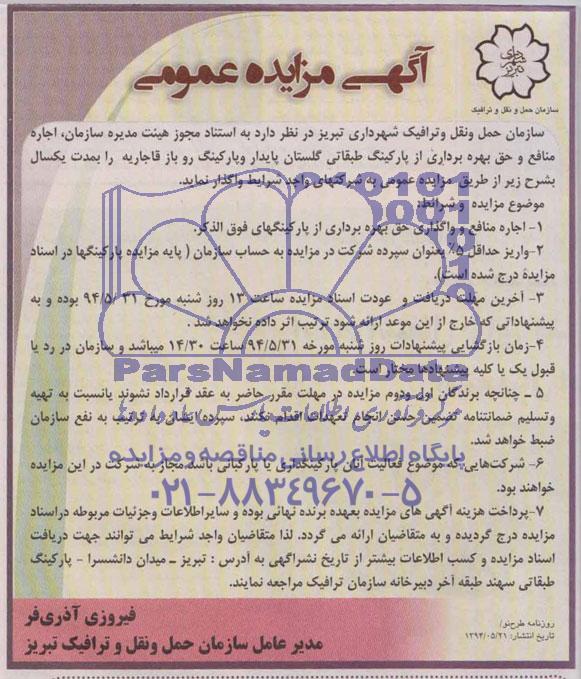 شهرداری تبریز
سازمان حمل و نقل و ترافیک
آگهی مزایده عمومی
سازمان حمل ونقل وترافیک شهرداری تبریز در نظر دارد به استناد مجوز هیئت مدیره سازمان، اجاره
منافع و حق بهره برداری از پارکینگ طبقاتی گلستان پایدار وپارکینگ رو باز قاجاریه را بمدت یکسال
بشرح زیر از طریق مزایده عمومی به شرکتهای واجد شرایط واگذار نماید.
موضوع مزایده و شرائط:
۱- اجاره منافع و واگذاری حق بهره برداری از پارکینگهای فوق الذکر.
۲-واریز حداقل ۵٪ بعنوان سپرده شرکت در مزایده به حساب سازمان ( پایه مزایده پارکینگها در اسناد
مزایده درج شده است).
۳- آخرین مهلت دریافت و عودت اسناد مزایده ساعت ۱۳ روز شنبه مورخ ۹۴/۵/۳۱ بوده و به
پیشنهاداتی که خارج از این موعد ارائه شود ترتیب اثر داده نخواهد شد .
۴-زمان بازگشایی پیشنهادات روز شنبه مورخه ۹۴/۵/۳۱ ساعت ۱۴/۳۰ میباشد و سازمان در رد یا
قبول یک یا کلیه پیشنهادها مختار است.
ParsNamadData
۵ ـ چنانچه برندگان اول ودوم مزایده در مهلت مقرر حاضر به عقد قرارداد نشوند یانسبت به تهیه
وتسلیم ضمانتنامه تضمین حسن انجام تعهدات اقدام نکنند، سپرده ایشان به ترتیب به نفع سازمان
ضبط خواهد شد.
پایگاه اطلاع رسانی مناقصه و مزایده
۶- شرکت‌هایی که موضوع فعالیت آنان پارکینگداری یا پارکبانی باشد مجاز به شرکت در این مزایده
خواهند بود.
۰۲۱-۸۸۳۴۹۶۷۰-۵
۷-پرداخت هزینه آگهی های مزایده بعهده برنده نهائی بوده و سایراطلاعات وجزئیات مربوطه دراسناد
مزایده درج گردیده و به متقاضیان ارائه می گردد. لذا متقاضیان واجد شرایط می توانند جهت دریافت
اسناد مزایده و کسب اطلاعات بیشتر از تاریخ نشراگهی به آدرس : تبریز ـ میدان دانشسرا - پارکینگ
طبقاتی سهند طبقه آخر دبیرخانه سازمان ترافیک مراجعه نمایند.
فیروزی آذری‌فر
مدیر عامل سازمان حمل ونقل و ترافیک تبریز
روزنامه طرح‌نو/
تاریخ انتشار: ۱۳۹۴/۰۵/۲۱